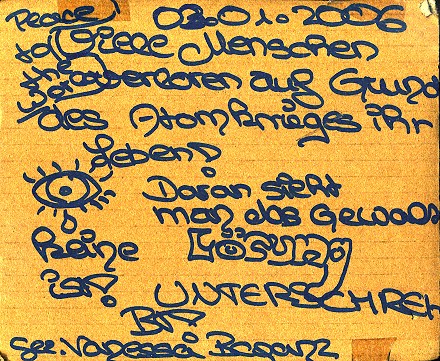 Peace 03.01.2006
to Viele Menschen
the verloren auf Grund
World des Atomkrieges ihr
Leben!
Daran sieht
man das Gewalt
keine Lösung
ist! UNTERSCHREI
BT!
gez. Vanessa